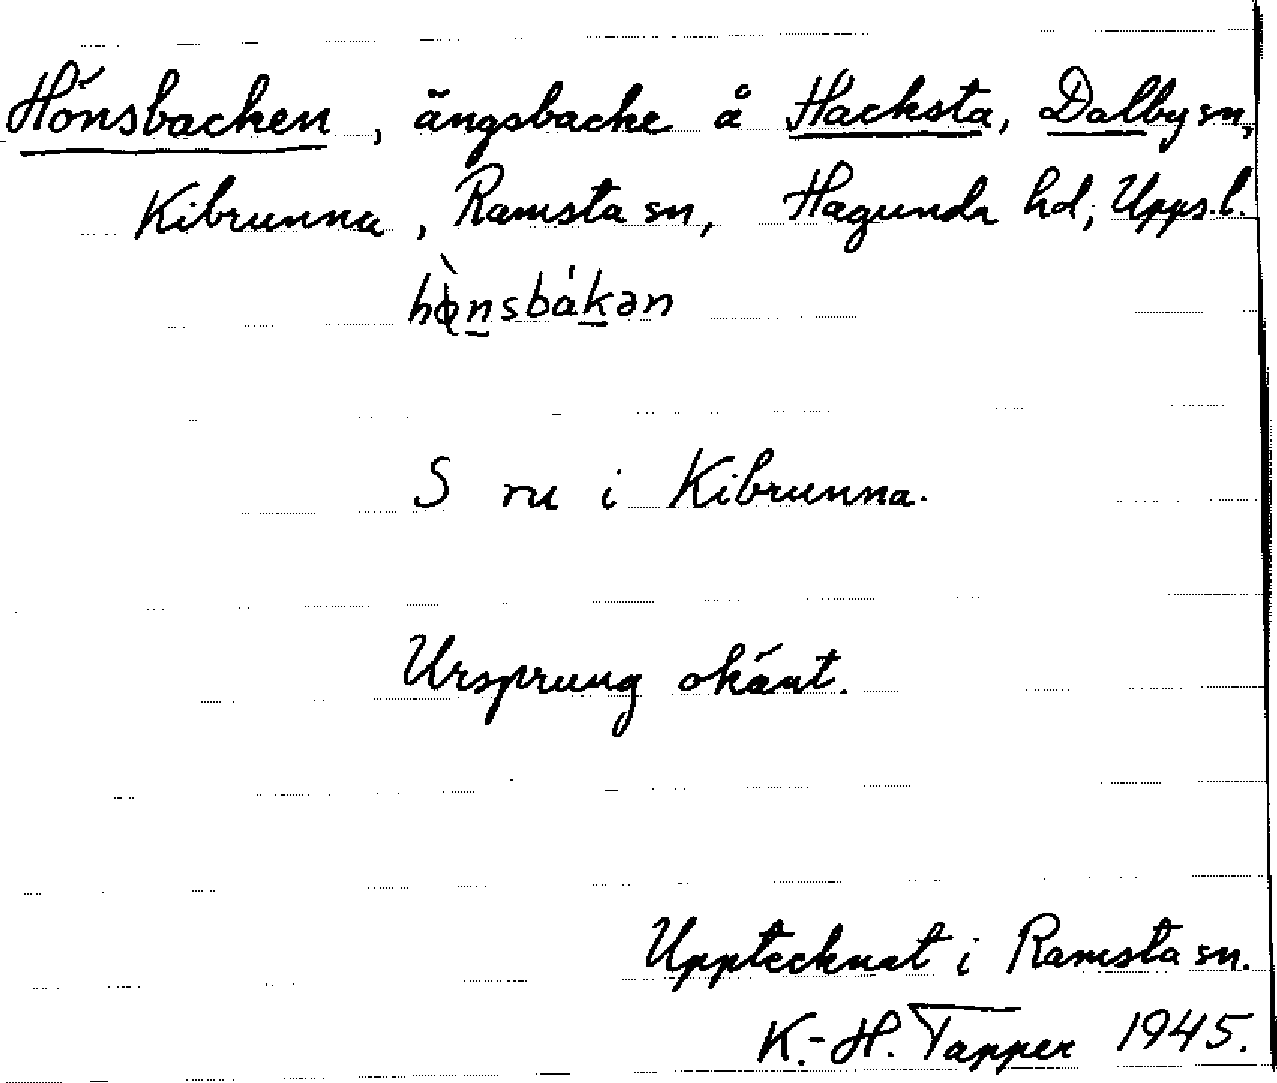 Hönsbacken, ängsbacke å Hacksta, Dalby sn,
Kibrunna, Ramsta sn, Hagunda hd, Upps.l.
hø̀nsbákən
S ru i Kibrunna.
Ursprung okänt.
Upptecknat i Ramsta sn.
K.-H. Tapper 1945.